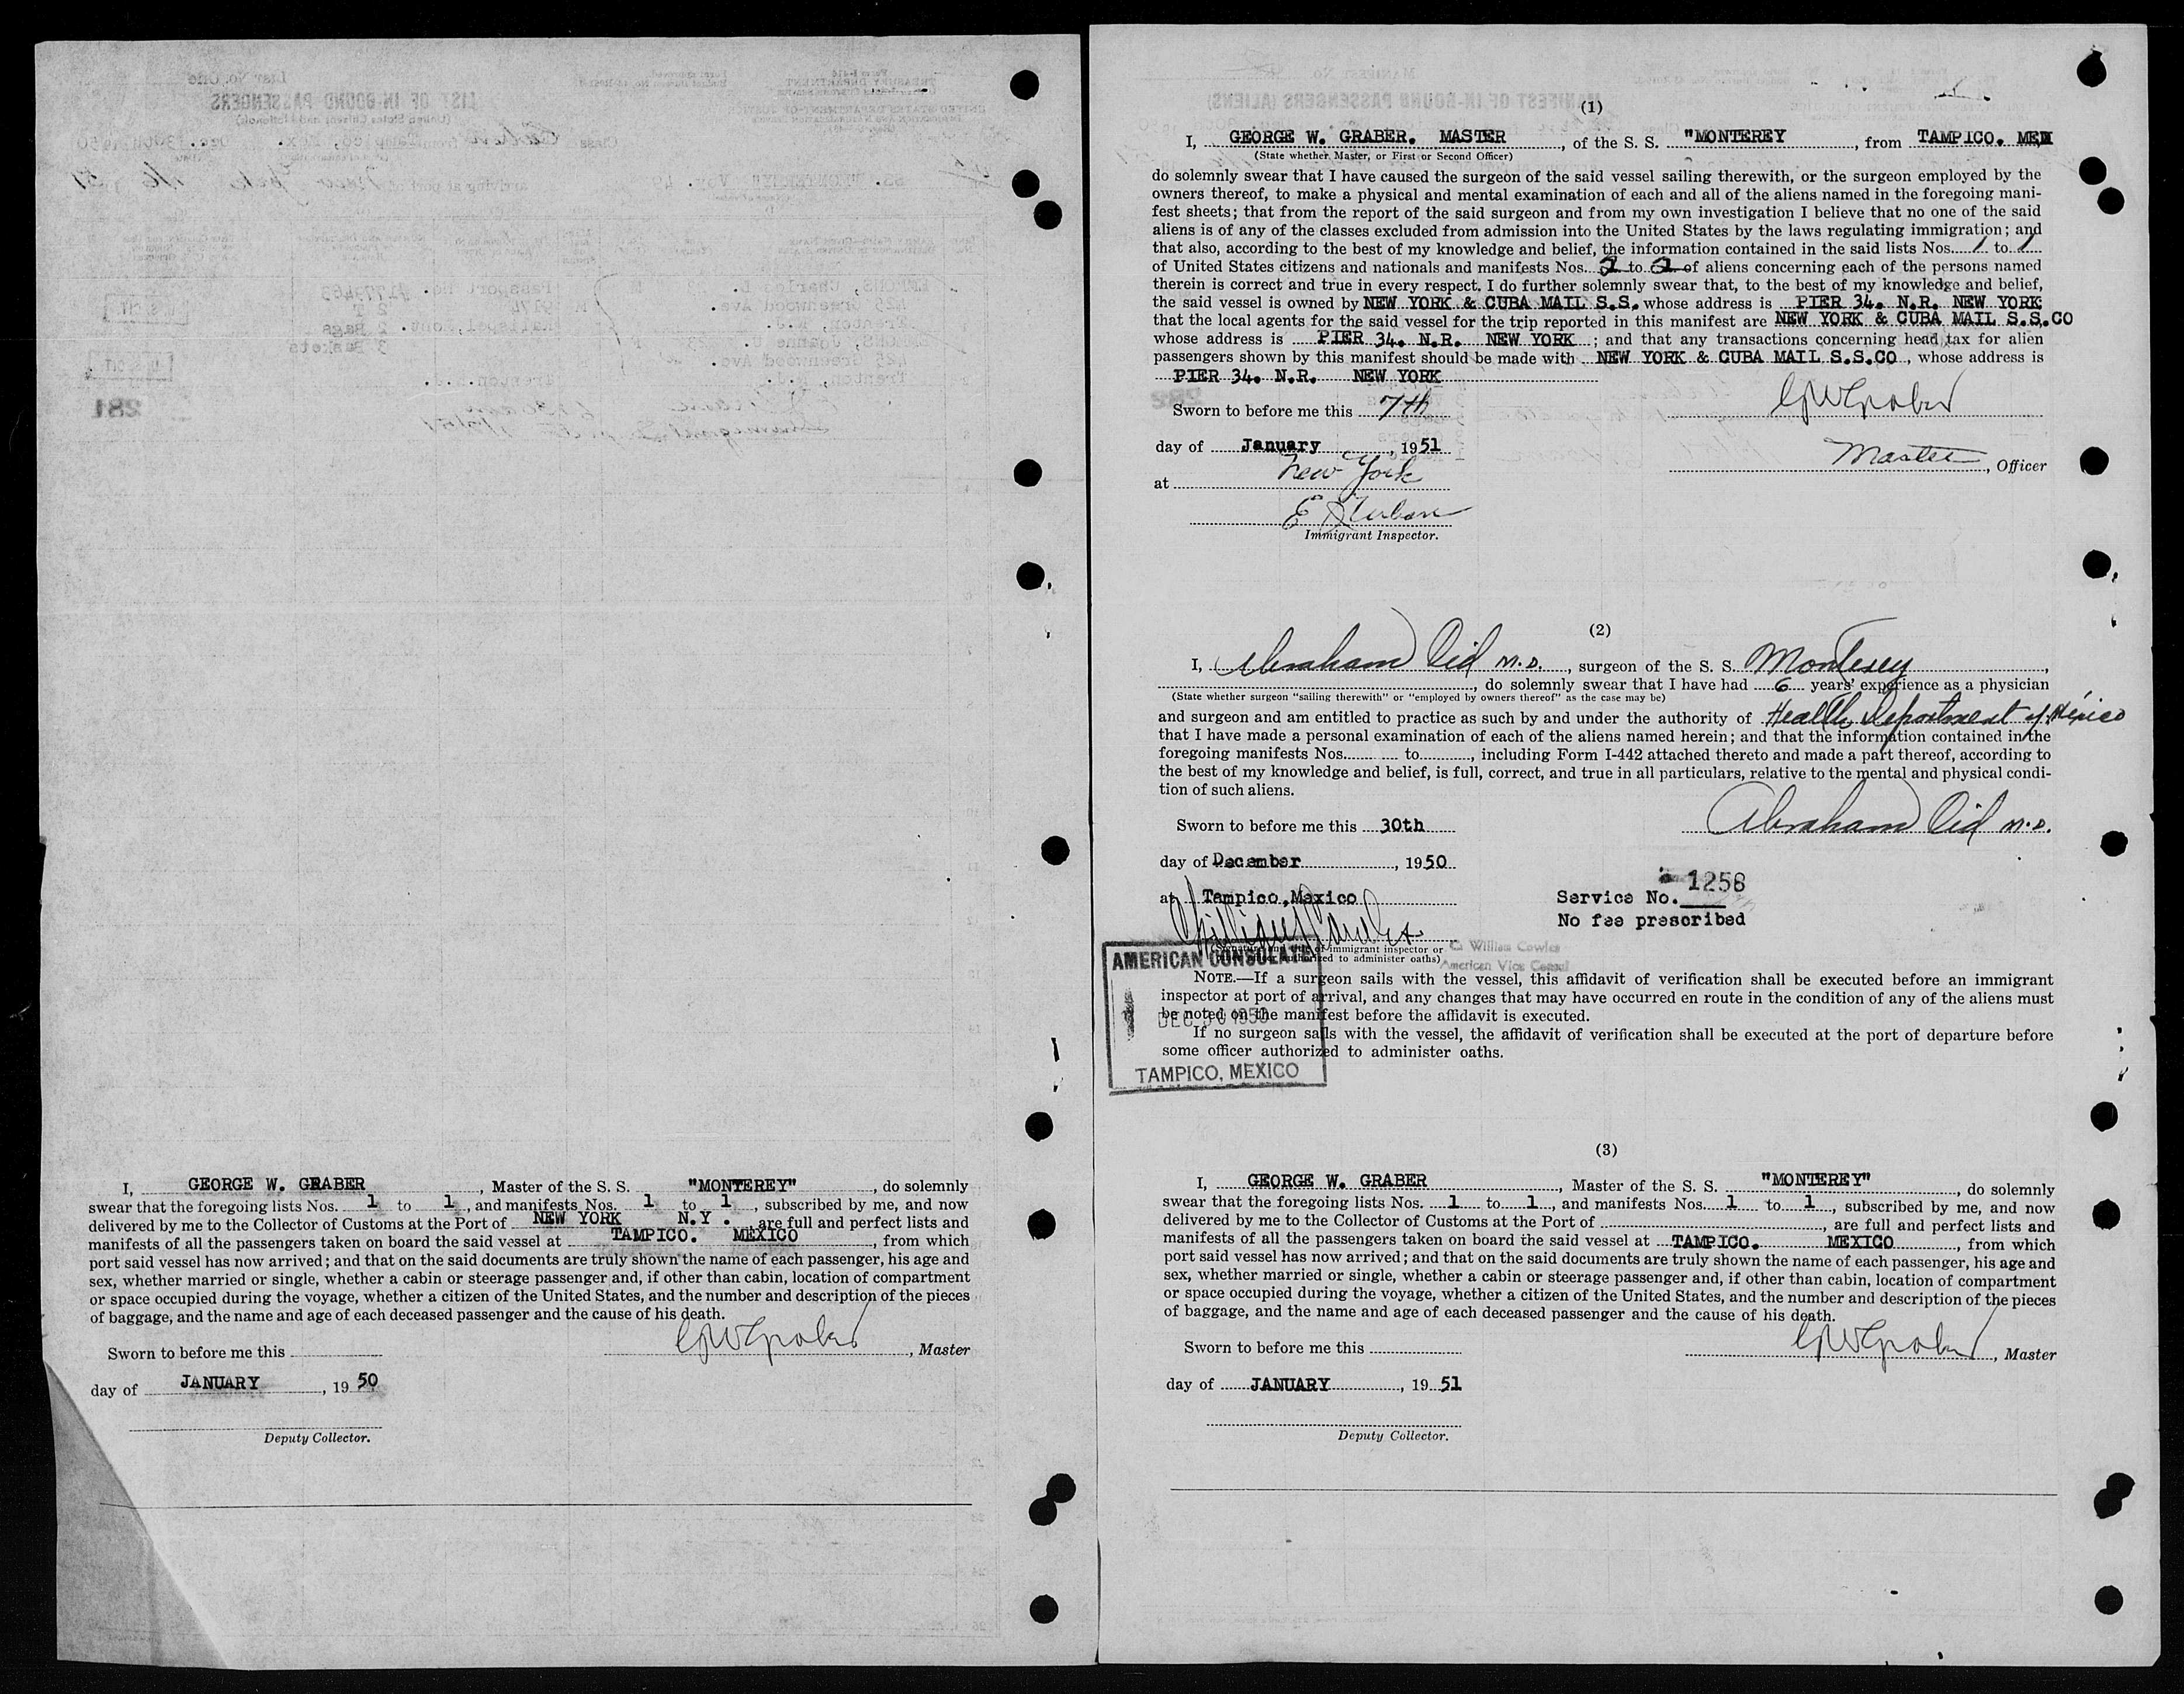 I, GEORGE W. GRABER , Master of the S. S. "MONTEREY" , do solemnly
swear that the foregoing lists Nos. 1 to 1 , and manifests Nos. 1 to 1 , subscribed by me, and now
delivered by me to the Collector of Customs at the Port of NEW YORK N.Y. , are full and perfect lists and
manifests of all the passengers taken on board the said vessel at TAMPICO. MEXICO , from which
port said vessel has now arrived; and that on the said documents are truly shown the name of each passenger, his age and
sex, whether married or single, whether a cabin or steerage passenger and, if other than cabin, location of compartment
or space occupied during the voyage, whether a citizen of the United States, and the number and description of the pieces
of baggage, and the name and age of each deceased passenger and the cause of his death.
GWGraber
Sworn to before me this , Master
day of JANUARY , 19 50
Deputy Collector.
(1)
I, GEORGE W. GRABER. MASTER , of the S. S. "MONTEREY , from TAMPICO. MEX
(State whether Master, or First or Second Officer)
do solemnly swear that I have caused the surgeon of the said vessel sailing therewith, or the surgeon employed by the
owners thereof, to make a physical and mental examination of each and all of the aliens named in the foregoing mani-
fest sheets; that from the report of the said surgeon and from my own investigation I believe that no one of the said
aliens is of any of the classes excluded from admission into the United States by the laws regulating immigration; and
that also, according to the best of my knowledge and belief, the information contained in the said lists Nos. 1 to 1
of United States citizens and nationals and manifests Nos. 2 to 2 of aliens concerning each of the persons named
therein is correct and true in every respect. I do further solemnly swear that, to the best of my knowledge and belief,
the said vessel is owned by NEW YORK & CUBA MAIL S.S. whose address is PIER 34. N.R. NEW YORK
that the local agents for the said vessel for the trip reported in this manifest are NEW YORK & CUBA MAIL S.S.CO
whose address is PIER 34. N.R. NEW YORK ; and that any transactions concerning head tax for alien
passengers shown by this manifest should be made with NEW YORK & CUBA MAIL S.S.CO , whose address is
PIER 34. N.R. NEW YORK
Sworn to before me this 7th GWGraber
day of January , 1951
Master , Officer
at New York
Immigrant Inspector.
(2)
I, Abraham Cid M.D. , surgeon of the S. S. Monterey ,
, do solemnly swear that I have had 6 years' experience as a physician
(State whether surgeon "sailing therewith" or "employed by owners thereof" as the case may be)
and surgeon and am entitled to practice as such by and under the authority of Health Department of México
that I have made a personal examination of each of the aliens named herein; and that the information contained in the
foregoing manifests Nos. to , including Form I-442 attached thereto and made a part thereof, according to
the best of my knowledge and belief, is full, correct, and true in all particulars, relative to the mental and physical condi-
tion of such aliens.
Sworn to before me this 30th Abraham Cid M.D.
day of December , 1950
at Tampico,Mexico
Service No. 1258
No fee prescribed
(Signature and title of immigrant inspector or
other officer authorized to administer oaths)
C. William Cowles
American Vice Consul
AMERICAN CONSULATE
DEC 30 1950
TAMPICO, MEXICO
NOTE.—If a surgeon sails with the vessel, this affidavit of verification shall be executed before an immigrant
inspector at port of arrival, and any changes that may have occurred en route in the condition of any of the aliens must
be noted on the manifest before the affidavit is executed.
If no surgeon sails with the vessel, the affidavit of verification shall be executed at the port of departure before
some officer authorized to administer oaths.
(3)
I, GEORGE W. GRABER , Master of the S. S. "MONTEREY" , do solemnly
swear that the foregoing lists Nos. 1 to 1 , and manifests Nos. 1 to 1 , subscribed by me, and now
delivered by me to the Collector of Customs at the Port of , are full and perfect lists and
manifests of all the passengers taken on board the said vessel at TAMPICO. MEXICO , from which
port said vessel has now arrived; and that on the said documents are truly shown the name of each passenger, his age and
sex, whether married or single, whether a cabin or steerage passenger and, if other than cabin, location of compartment
or space occupied during the voyage, whether a citizen of the United States, and the number and description of the pieces
of baggage, and the name and age of each deceased passenger and the cause of his death.
GWGraber
Sworn to before me this , Master
day of JANUARY , 19 51
Deputy Collector.